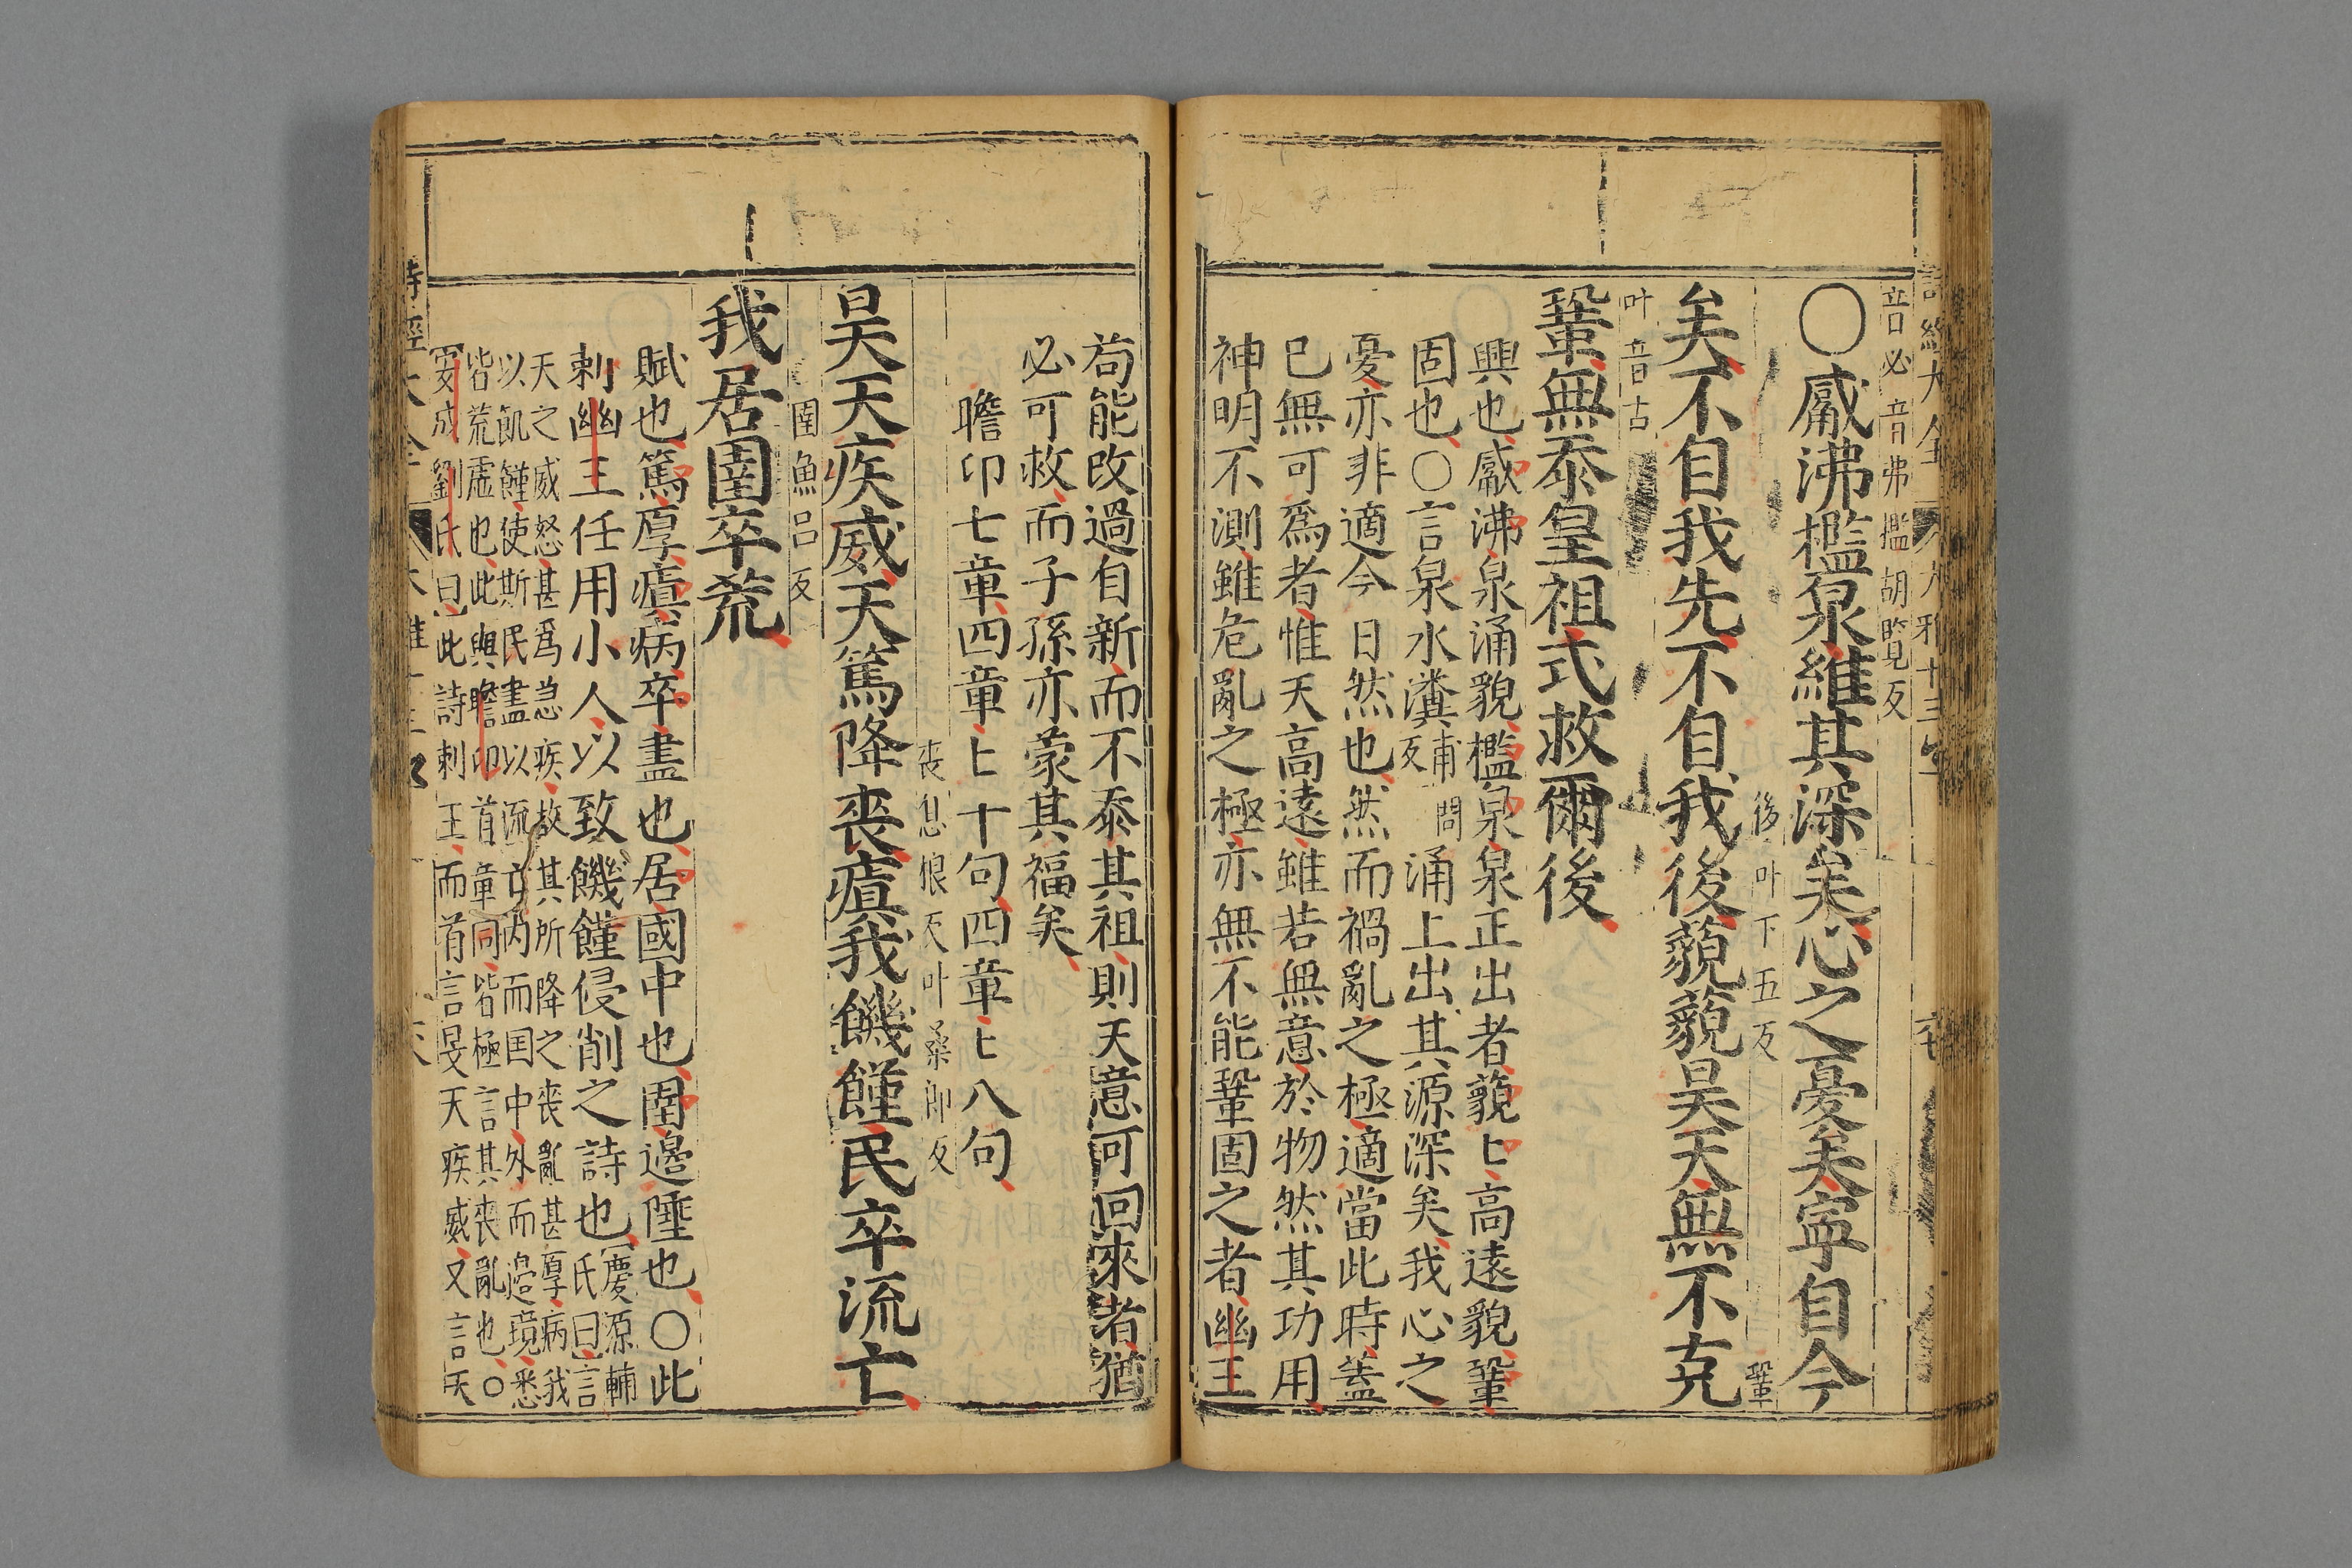 音必音弗檻胡覽反
〇觱沸檻泉維其深矣心之憂矣寧自今
後叶下五反 鞏
矣不自我先不自我後藐藐昊天無不克
叶音古
鞏無忝皇祖式救爾後
興也觱沸泉涌貌檻泉泉正出者藐〻高遠貌鞏
固也〇言泉水瀵甫問反涌上出其源深矣我心之
憂亦非適今日然也然而禍亂之極適當此時蓋
已無可爲者惟天高遠雖若無意於物然其功用
神明不測雖危亂之極亦無不能鞏固之者幽王
苟能改過自新而不忝其祖則天意可回來者猶
必可救而子孫亦蒙其福矣
瞻卬七章四章〻十句四章〻八句
喪息浪反叶桑郎反
昊天疾威天篤降喪瘨我饑饉民卒流亡
圉魚呂反
我居圉卒荒
賦也篤厚瘨病卒盡也居國中也圉邊陲也〇此
刺幽王任用小人以致饑饉侵削之詩也慶源輔
氏曰言
天之威怒甚爲急疾故其所降之喪亂甚厚病我
以飢饉使斯民盡以流亡内而国中外而邊境悉
皆荒虛也此與瞻卬首章同皆極言其喪亂也〇
安成劉氏曰此詩刺王而首言旻天疾威又言天